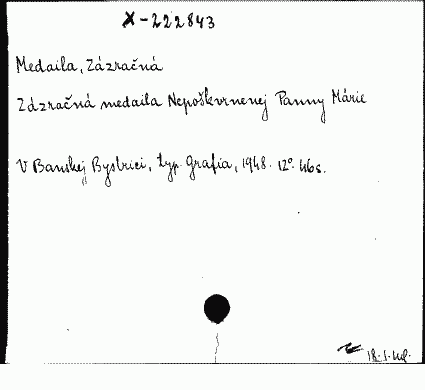 X-222843
Medaila, Zázračná
Zázračná medaila Nepoškvrnenej Panny Márie
V Banskej Bystrici, typ. Grafia, 1948. 12°. 46s.